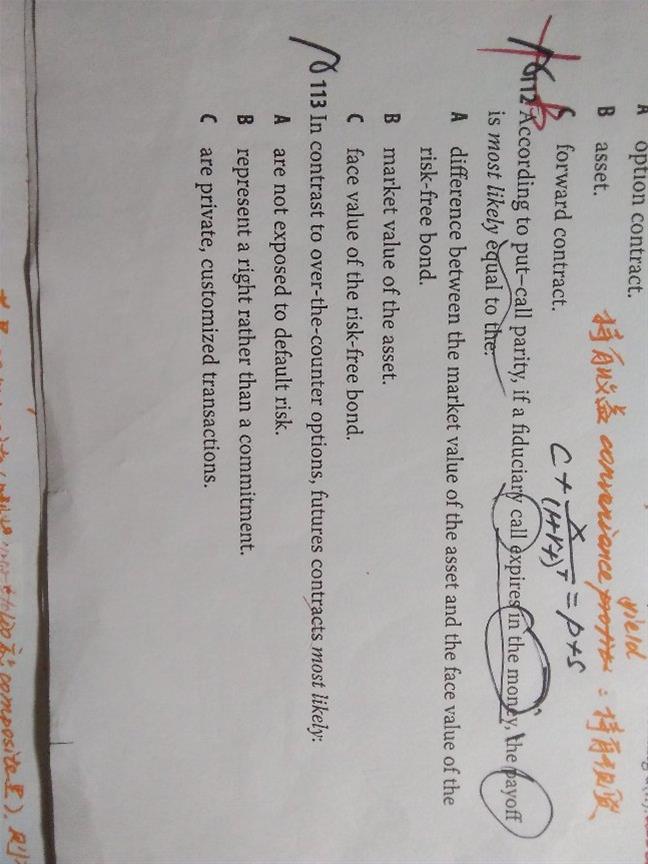 A option contract.
B asset.
C forward contract.
持有收益 convenience yield
C + X/(1+r)^T = P+S
112 According to put–call parity, if a fiduciary call expires in the money, the payoff
is most likely equal to the:
A difference between the market value of the asset and the face value of the
risk-free bond.
B market value of the asset.
C face value of the risk-free bond.
113 In contrast to over-the-counter options, futures contracts most likely:
A are not exposed to default risk.
B represent a right rather than a commitment.
C are private, customized transactions.